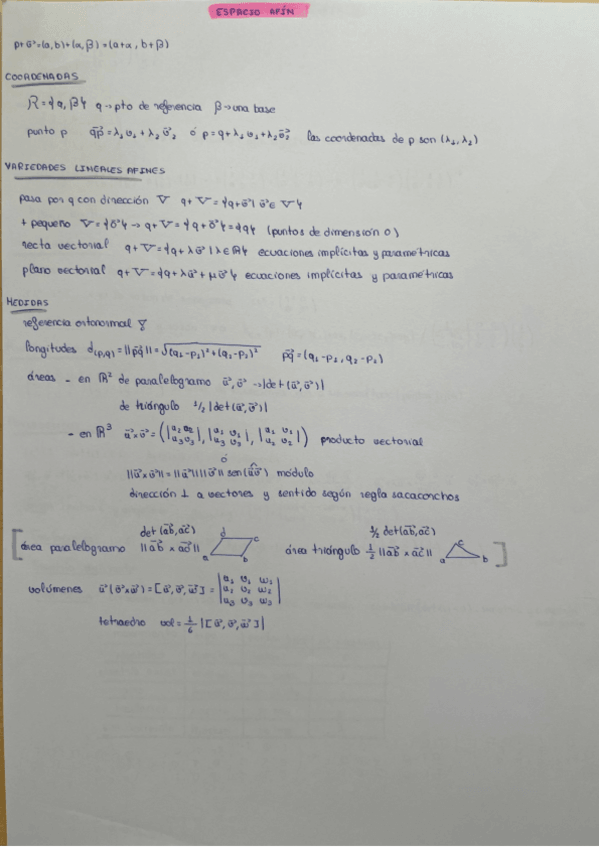 ESPACIO AFÍN
p+v⃗=(a,b)+(α,β)=(a+α, b+β)
COORDENADAS
R={q,β} q→pto de referencia β→una base
punto p q⃗p=λ₁v₁+λ₂v⃗₂ ó p=q+λ₁v₁+λ₂v⃗₂ las coordenadas de p son (λ₁,λ₂)
VARIEDADES LINEALES AFINES
pasa por q con dirección V q+V={q+v⃗ | v⃗∈V}
+ pequeño V={o⃗}→q+V={q+o⃗}={q} (puntos de dimensión 0)
recta vectorial q+V={q+λv⃗ | λ∈ℝ} ecuaciones implícitas y paramétricas
plano vectorial q+V={q+λu⃗+μv⃗} ecuaciones implícitas y paramétricas
MEDIDAS
referencia ortonormal
longitudes d(p,q)=||p⃗q||=√(q₁-p₁)²+(q₂-p₂)² p⃗q=(q₁-p₁,q₂-p₂)
áreas - en ℝ² de paralelogramo u⃗,v⃗ →|det(u⃗,v⃗)|
de triángulo 1/2 |det(u⃗,v⃗)|
- en ℝ³ u⃗×v⃗=(|u₂ v₂ u₃ v₃|,|u₁ v₁ u₃ v₃|,|u₁ v₁ u₂ v₂|) producto vectorial
ó
||u⃗×v⃗||=||u⃗||||v⃗|| sen(u⃗v⃗) módulo
dirección ⊥ a vectores y sentido según regla sacaconchos
det(a⃗b,a⃗c) 1/2 det(a⃗b,a⃗c)
[área paralelogramo ||a⃗b × a⃗d|| a b c d área triángulo 1/2 ||a⃗b × a⃗c|| a b c]
volúmenes u⃗(v⃗×w⃗)=[u⃗,v⃗,w⃗]=|u₁ v₁ w₁ u₂ v₂ w₂ u₃ v₃ w₃|
tetraedro vol=1/6 |[u⃗,v⃗,w⃗]|